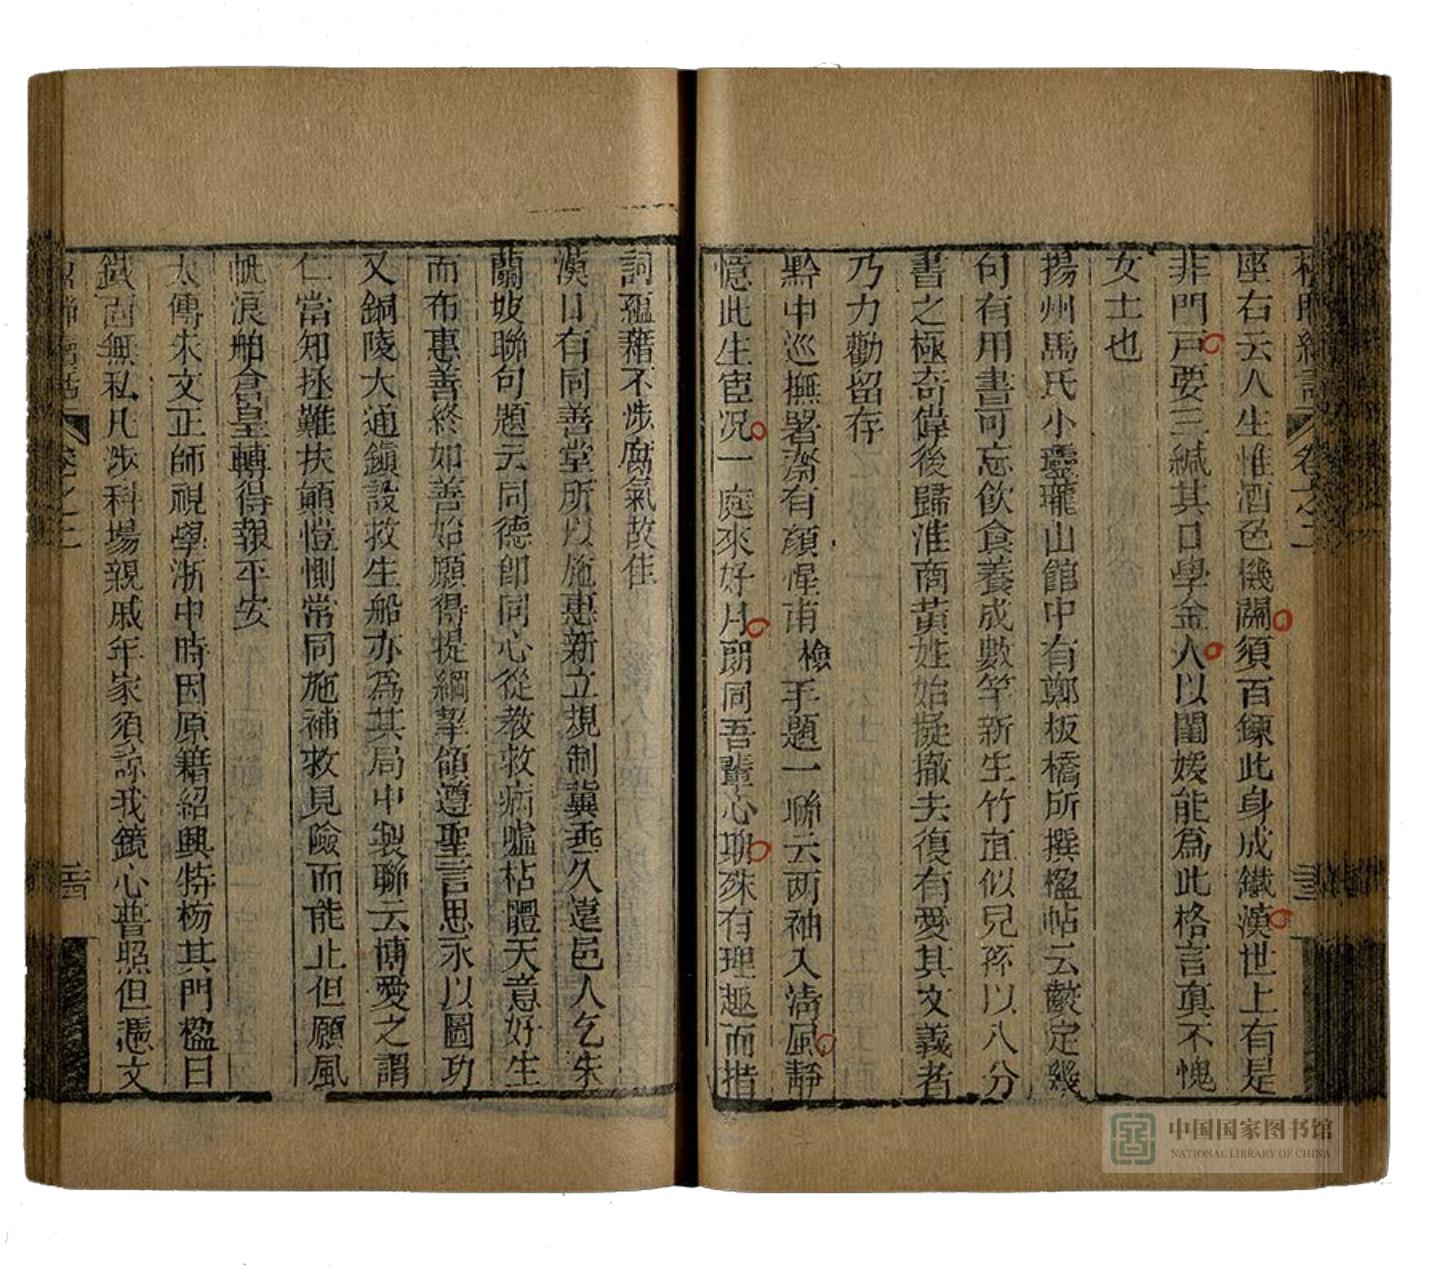 楹聯續話 卷之二 三
座右云人生惟酒色機關須百鍊此身成鐵漢世上有是
非門戶要三緘其口學金人以閨媛能爲此格言真不愧
女士也
揚州馬氏小玲瓏山館中有鄭板橋所撰楹帖云歐定幾
句有用書可忘飲食養成數竿新生竹直似兒孫以八分
書之極奇偉後歸淮商黃姓始擬撤去復有愛其文義者
乃力勸留存
黔中巡撫署齋有顏惺甫檢手題一聯云两袖入清風靜
憶此生宦况一庭來好月朗同吾輩心聊殊有理趣而措
詞蘊藉不涉腐氣故佳
漢口有同善堂所以施惠新立規制冀垂久遠邑人乞朱
蘭坡聯句題云同德卽同心從教救病噓枯體天意好生
而布惠善終如善始願得提綱挈領遵聖言思永以圖功
又銅陵大通鎭設救生船亦爲其局中製聯云博愛之謂
仁當知拯難扶顚愷惻常同施補救見險而能止但願風
帆浪舶倉皇轉得報平安
太傅朱文正師視學浙中時因原籍紹興特榜其門楹曰
鐵面無私凡涉科場親戚年家須諒我鏡心普照但憑文
楹聯續話 卷之二